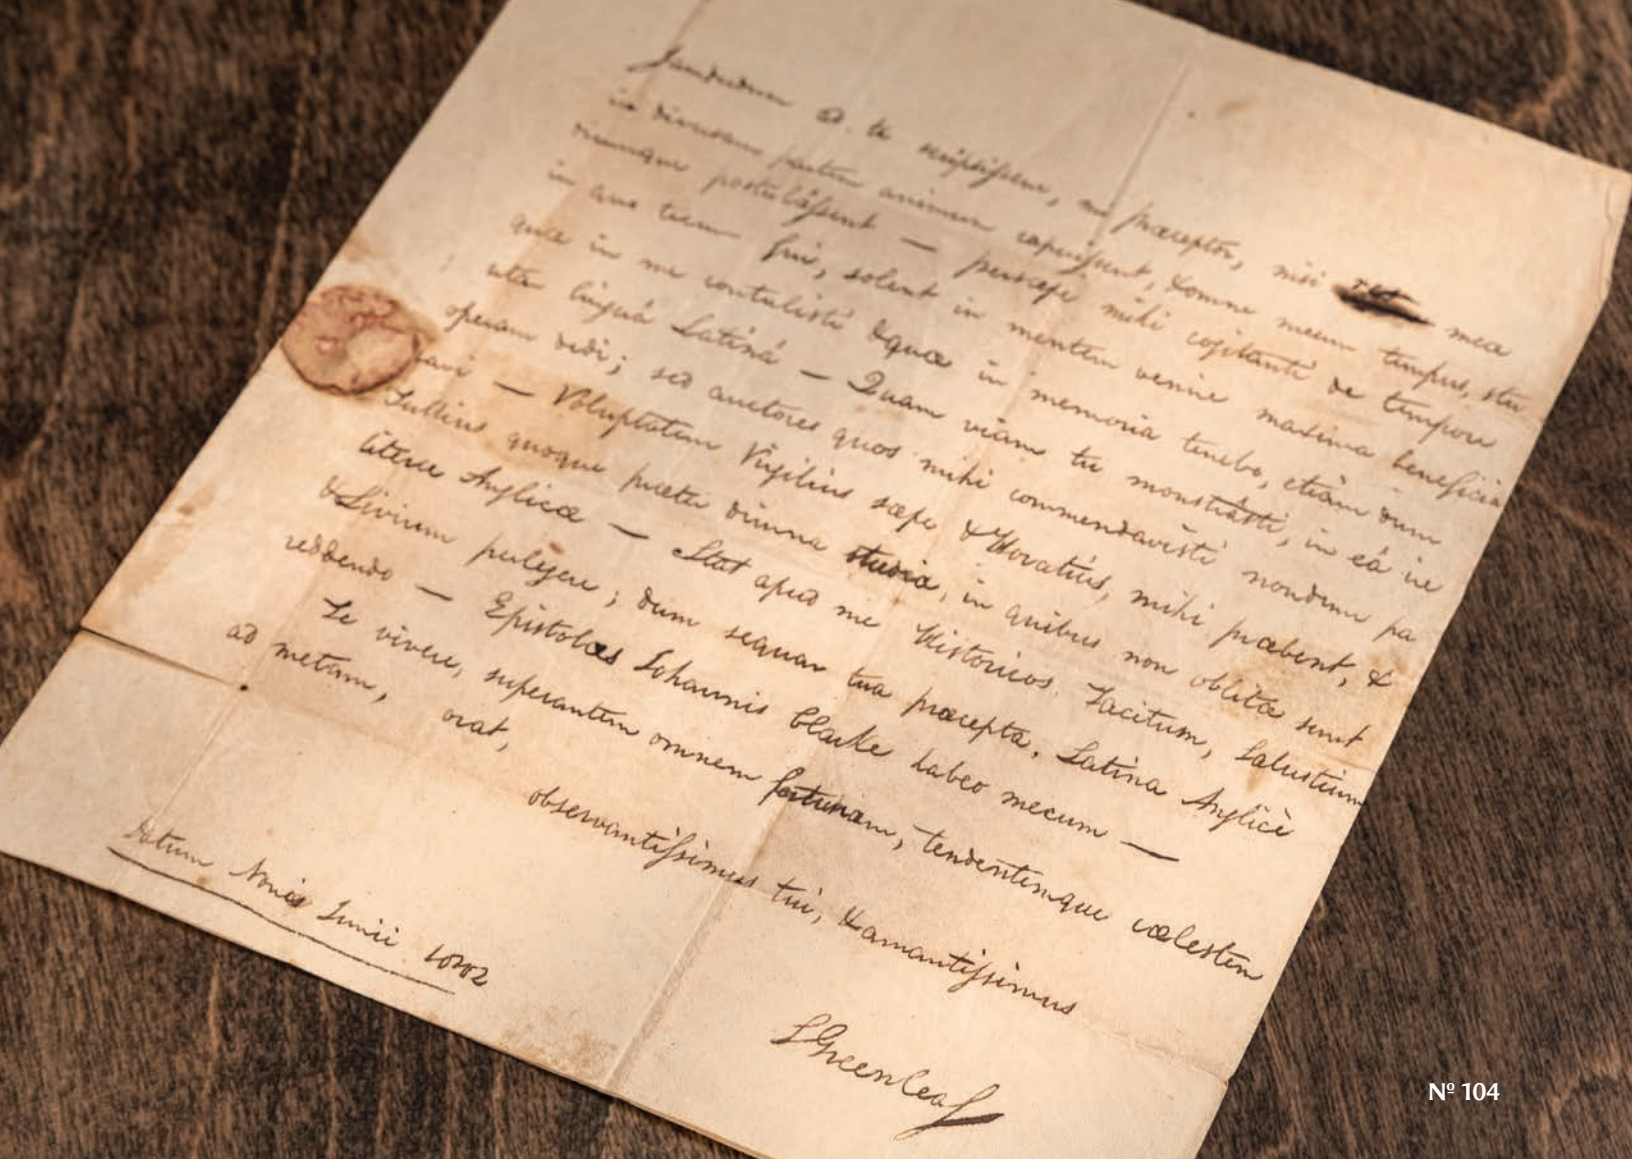 Jamdudum ad te scripsissem, mi præceptor, nisi res mea
in diversam partem animum rapuissent, & omne meum tempus, stu
diumque postulâssent — persæpe mihi cogitanti de tempore
in quo tecum fui, solent in mentem venire maxima beneficia
quæ in me contulisti & quæ in memoria tenebo, etiam dum
utar linguâ Latinâ — Quam viam tu monstrâsti, in eâ ire
operam dedi; sed auctores quos mihi commendavisti nondum pa
ravi — Voluptatem Virgilius sæpe & Horatius, mihi præbent, &
Tullius quoque præter divina studia, in quibus non oblitæ sunt
literæ Anglicæ — Stat apud me Historicos, Tacitum, Salustium
& Livium perlegere; dum sequar tua præcepta, Latina Anglicè
reddendo — Epistolas Johannis Clarke habeo mecum —
Te vivere, superantem omnem fortunam, tendentemque cœlestem
ad metam,
orat,
observantissimus tui, & amantissimus
SGreenleaf
Datum Nonis Junii
Nº 104